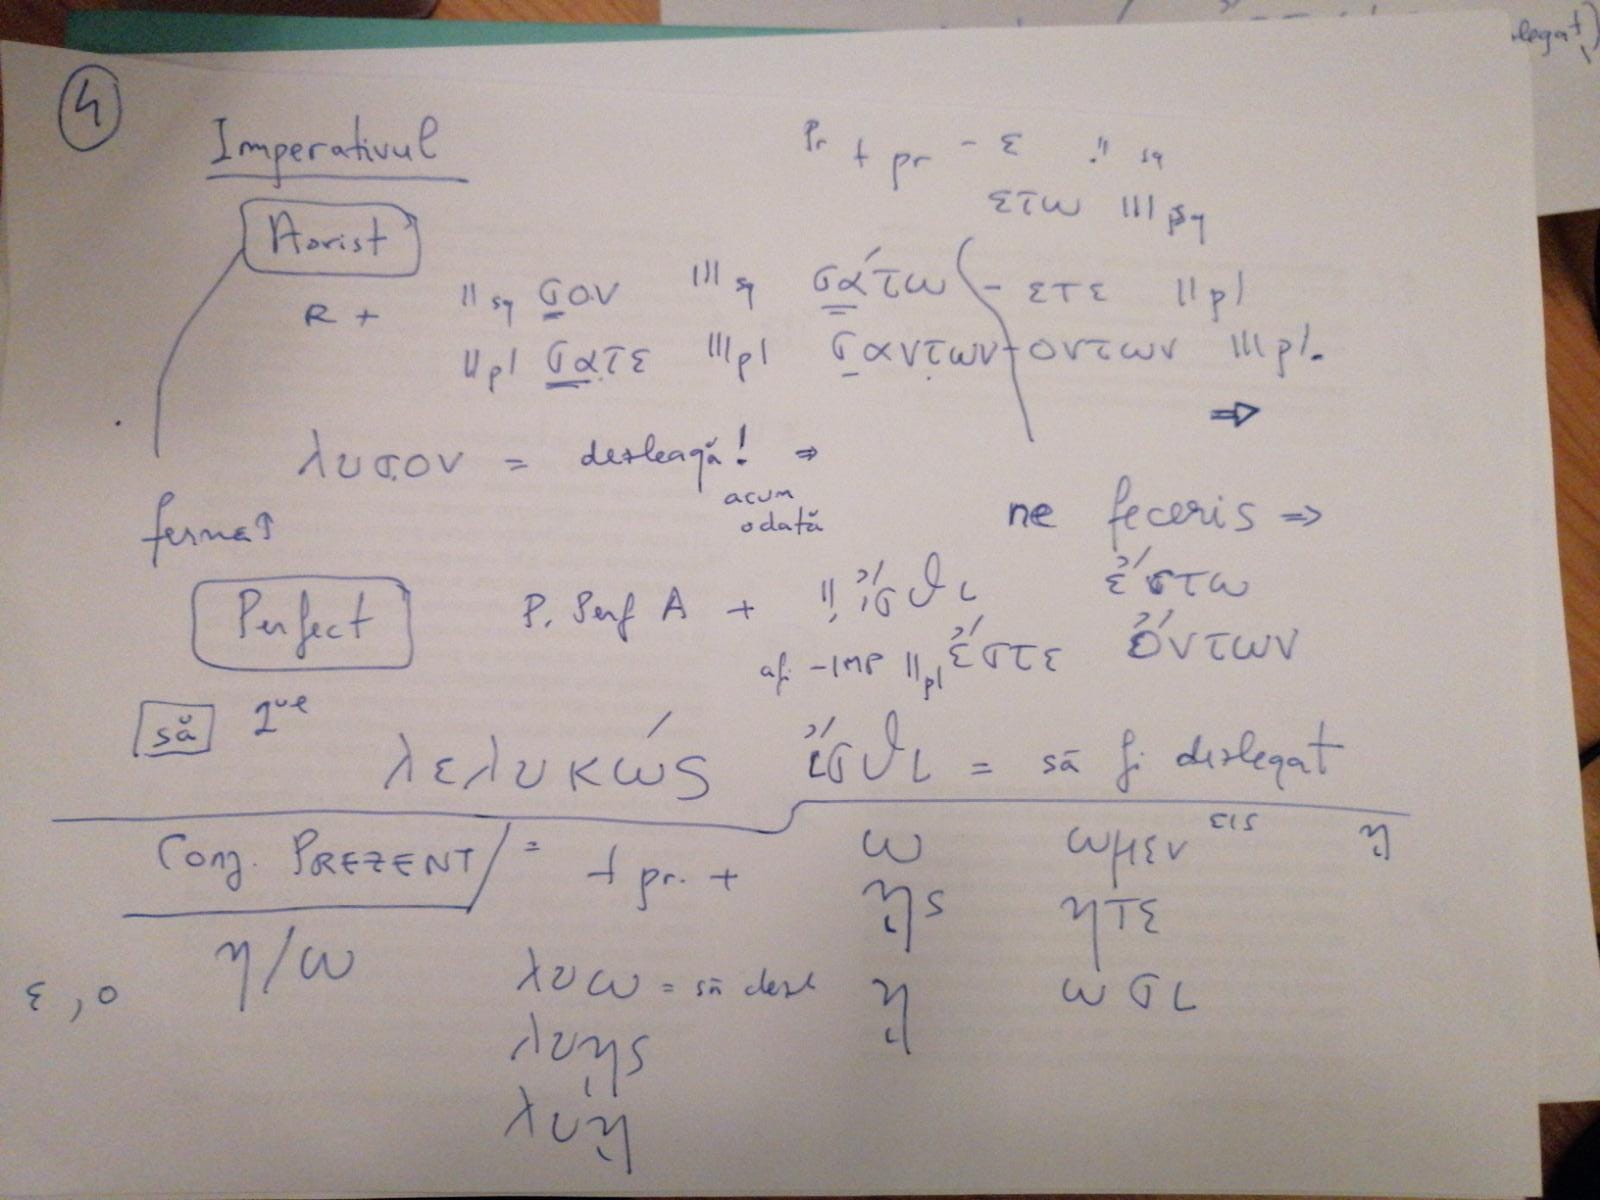 legat)
4
Imperativul
Pr t pr - ε II sg
ετω III sg
Aorist
R + II sg σον III sg σάτω - ετε II pl
II pl σατε III pl σαντων - οντων III pl.
⇒
λυσον = dezleagă! ⇒
acum
odată
ne feceris ⇒
Perfect
P. Perf A + II ἴσθι ἔστω
a fi - IMP II pl ἔστε ὄντων
să
λελυκώς ἴσθι = să fi dezlegat
Conj. PREZENT = t pr. + ω ωμεν εις ῃ
ῃς ητε
η/ω
ε, ο
λυω = să dezl ῃ ωσι
λυῃς
λυῃ